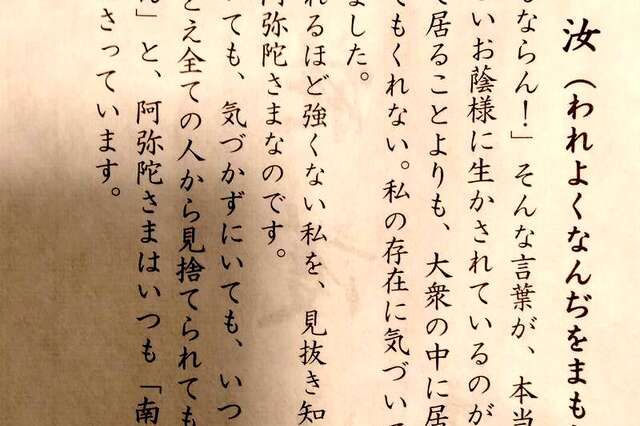 汝（われよくなんぢをまも
ならん！」そんな言葉が、本当
いお蔭様に生かされているのが
て居ることよりも、大衆の中に居
てもくれない。私の存在に気づいて
ました。
れるほど強くない私を、見抜き知
阿弥陀さまなのです。
っても、気づかずにいても、いつ
とえ全ての人から見捨てられても
ん」と、阿弥陀さまはいつも「南
さっています。